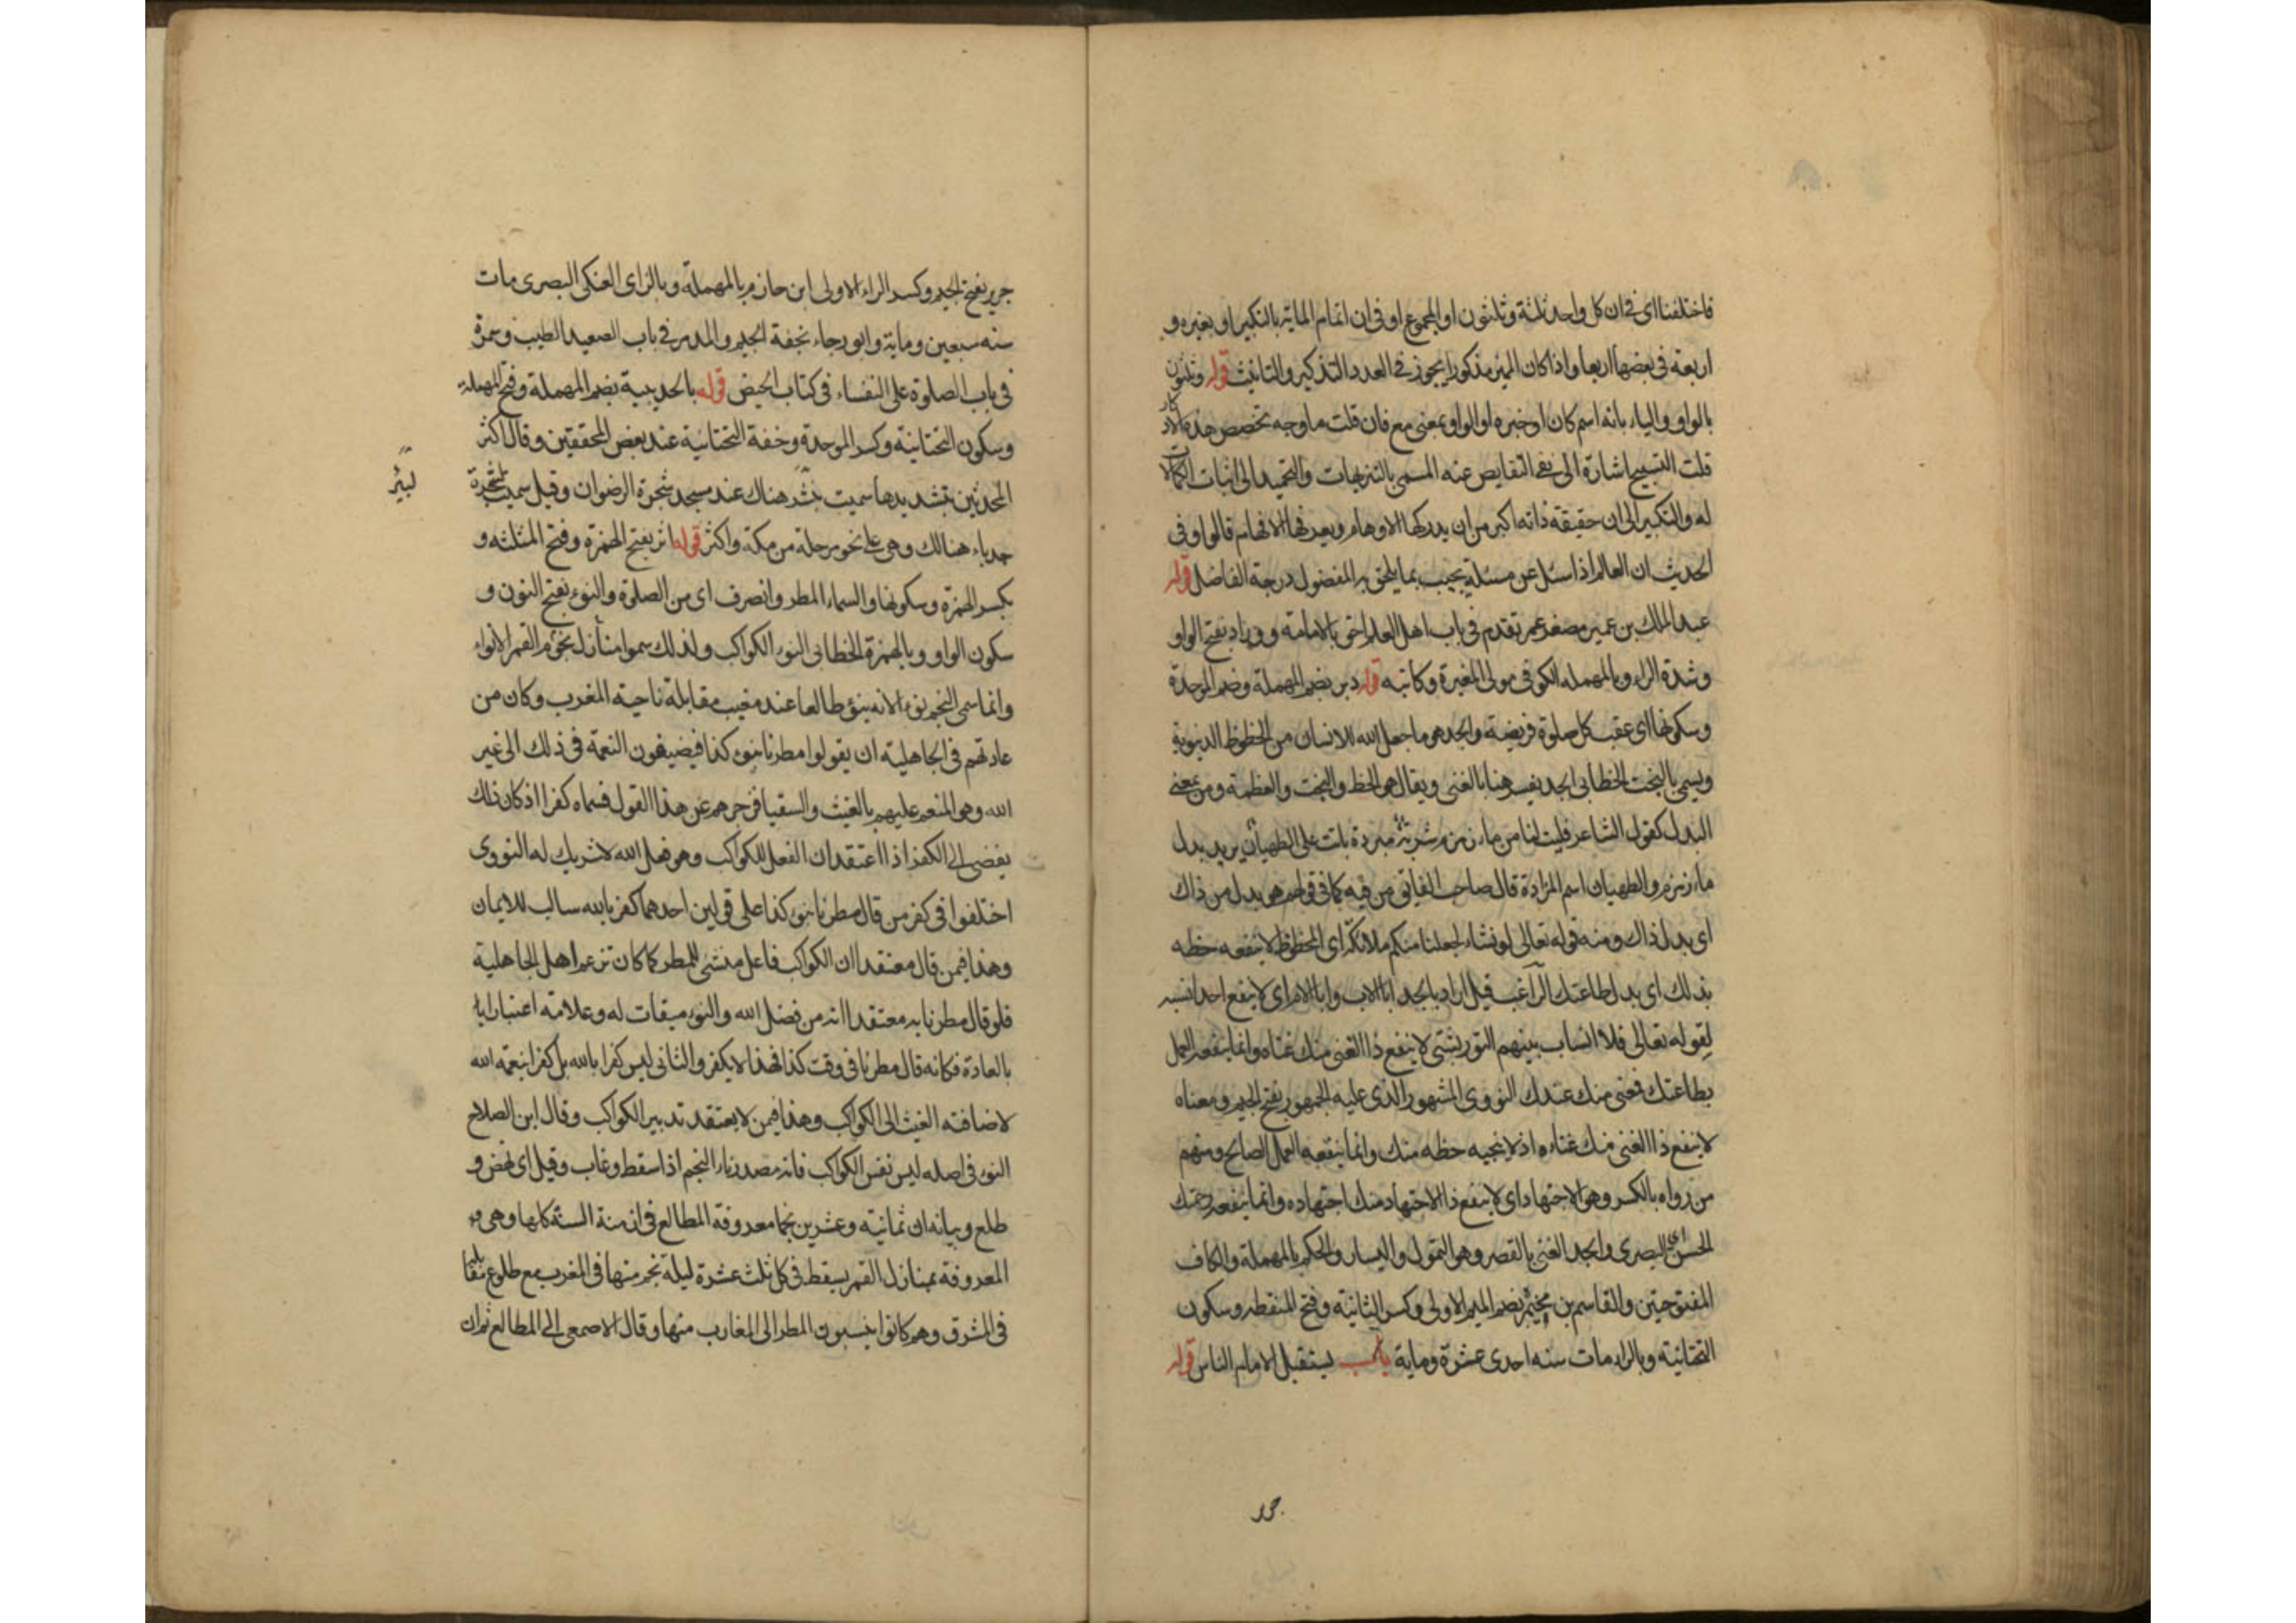 فاختلفنا اى فى ان كل واحد ثلثة وثلثون او المجموع او فى ان اتمام الماية بالتكبير او بغيره و
اربعة فى بعضها اربعا واذا كان المميز مذكورا يجوز فى العدد التذكير والتانيث قوله وثلثون
بالواو والياء بانه اسم كان او خبره او الواو بمعنى مع فان قلت ما وجه تخصص هذه الاذكار
قلت التسبيح اشارة الى نفى النقايص عنه المسمى بالتنزيهات والتحميد الى اثبات الكمالات
له والتكبير الى ان حقيقة ذاته اكبر من ان يدركها الاوهام ويعرفها الافهام قالوا وفى
الحديث ان العالم اذا سئل عن مسئلة يجيب بما يلحق به المفضول درجة الفاضل قوله
عبد الملك بن عمير مصغر عمر تقدم فى باب اهل العلم احق بالامامة ووراد بفتح الواو
وشدة الراء وبالمهملة الكوفى مولى المغيرة وكاتبه قوله دبر بضم المهملة وضم الموحدة
وسكونها اى عقب كل صلوة فريضة والجد هو ما جعل الله للانسان من الحظوظ الدنيوية
ويسمى بالبخت الخطابى الجد يفسر هنا بالغنى ويقال هو الحظ والبخت والعظمة ومن بمعنى
البدل كقول الشاعر فليت لنا من ماء زمزم شربة مبردة باتت على الطهيان يريد بدل
ماء زمزم والطهيان اسم المزادة قال صاحب الفايق من فيه كما فى قولهم هو بدل من ذاك
اى بدل ذاك ومنه قوله تعالى لو نشاء لجعلنا منكم ملائكة اى المحظوظ لا ينفعه حظه
بذلك اى بدل طاعتك الراغب قيل اراد بالجد ابا الاب وابا الام اى لا ينفع احدا نسبه
لقوله تعالى فلا انساب بينهم التوربشتى لا ينفع ذا الغنى منك غناه وانما ينفعه العمل
بطاعتك فمعنى منك عندك النووى المشهور الذى عليه الجمهور بفتح الجيم ومعناه
لا ينفع ذا الغنى منك غناءه اذ لا ينجيه حظه منك وانما ينفعه العمل الصالح ومنهم
من رواه بالكسر وهو الاجتهاد اى لا ينفع ذا الاجتهاد منك اجتهاده وانما ينفعه رحمتك
الحسن اى البصرى والجد الغنى بالقصر وهو التمول واليسار والحكم بالمهملة والكاف
المفتوحتين والقاسم بن مخيمر بضم الميم الاولى وكسر الثانية وفتح المنقطه وسكون
التحتانية وبالراء مات سنه احدى عشرة وماية باب يستقبل الامام الناس قوله
جرير
جرير بفتح الجيم وكسر الراء الاولى ابن حازم بالمهملة وبالزاى العتكى البصرى مات
سنه سبعين وماية وابو رجاء بخفة الجيم والمد مر فى باب الصعيد الطيب وسمرة
فى باب الصلوة على النفساء فى كتاب الحيض قوله بالحديبية بضم المهملة وفتح المهملة
وسكون التحتانية وكسر الموحدة وخفة التحتانية عند بعض المحققين وقال اكثر
المحدثين بتشديدها سميت ببئر هناك عند مسجد شجرة الرضوان وقيل سميت بشجرة
لبئر
حدباء هنالك وهى على نحو مرحلة من مكة واكثر قوله اثر بفتح الهمزة وفتح المثلثه و
بكسر الهمزة وسكونها والسماء المطر وانصرف اى من الصلوة والنوء بفتح النون و
سكون الواو وبالهمزة الخطابى النوء الكواكب ولذلك سموا منازل نجوم القمر الانواء
وانما سمى النجم نوءا لانه ينوء طالعا عند مغيب مقابلة ناحية المغرب وكان من
عادتهم فى الجاهلية ان يقولوا مطرنا بنوء كذا فيضيفون النعمة فى ذلك الى غير
الله وهو المنعم عليهم بالغيث والسقيا فزجرهم عن هذا القول فسماه كفرا اذ كان ذلك
يفضى الى الكفر اذا اعتقد ان الفعل للكواكب وهو فعل الله لا شريك له النووى
اختلفوا فى كفر من قال مطرنا بنوء كذا على قولين احدهما كفر بالله سالب للايمان
وهذا فيمن قال معتقدا ان الكواكب فاعل منشئ للمطر كما كان تزعم اهل الجاهلية
فلو قال مطرنا به معتقدا انه من فضل الله والنوء ميقات له وعلامة اعتبارا
بالعادة فكانه قال مطرنا فى وقت كذا فهذا لا يكفر والثانى ليس كفرا بالله بل كفرا بنعمة الله
لاضافته الغيث الى الكواكب وهذا فيمن لا يعتقد تدبير الكواكب وقال ابن الصلاح
النوء فى اصله ليس نفس الكواكب فانه مصدر ناء النجم اذا سقط وغاب وقيل اى نهض و
طلع وبيانه ان ثمانية وعشرين نجما معروفة المطالع فى ازمنة السنة كلها وهى
المعروفة بمنازل القمر يسقط فى كل ثلث عشرة ليلة نجم منها فى المغرب مع طلوع مقابله
فى المشرق وهم كانوا ينسبون المطر الى المغارب منها وقال الاصمعى الى المطالع ثم ان